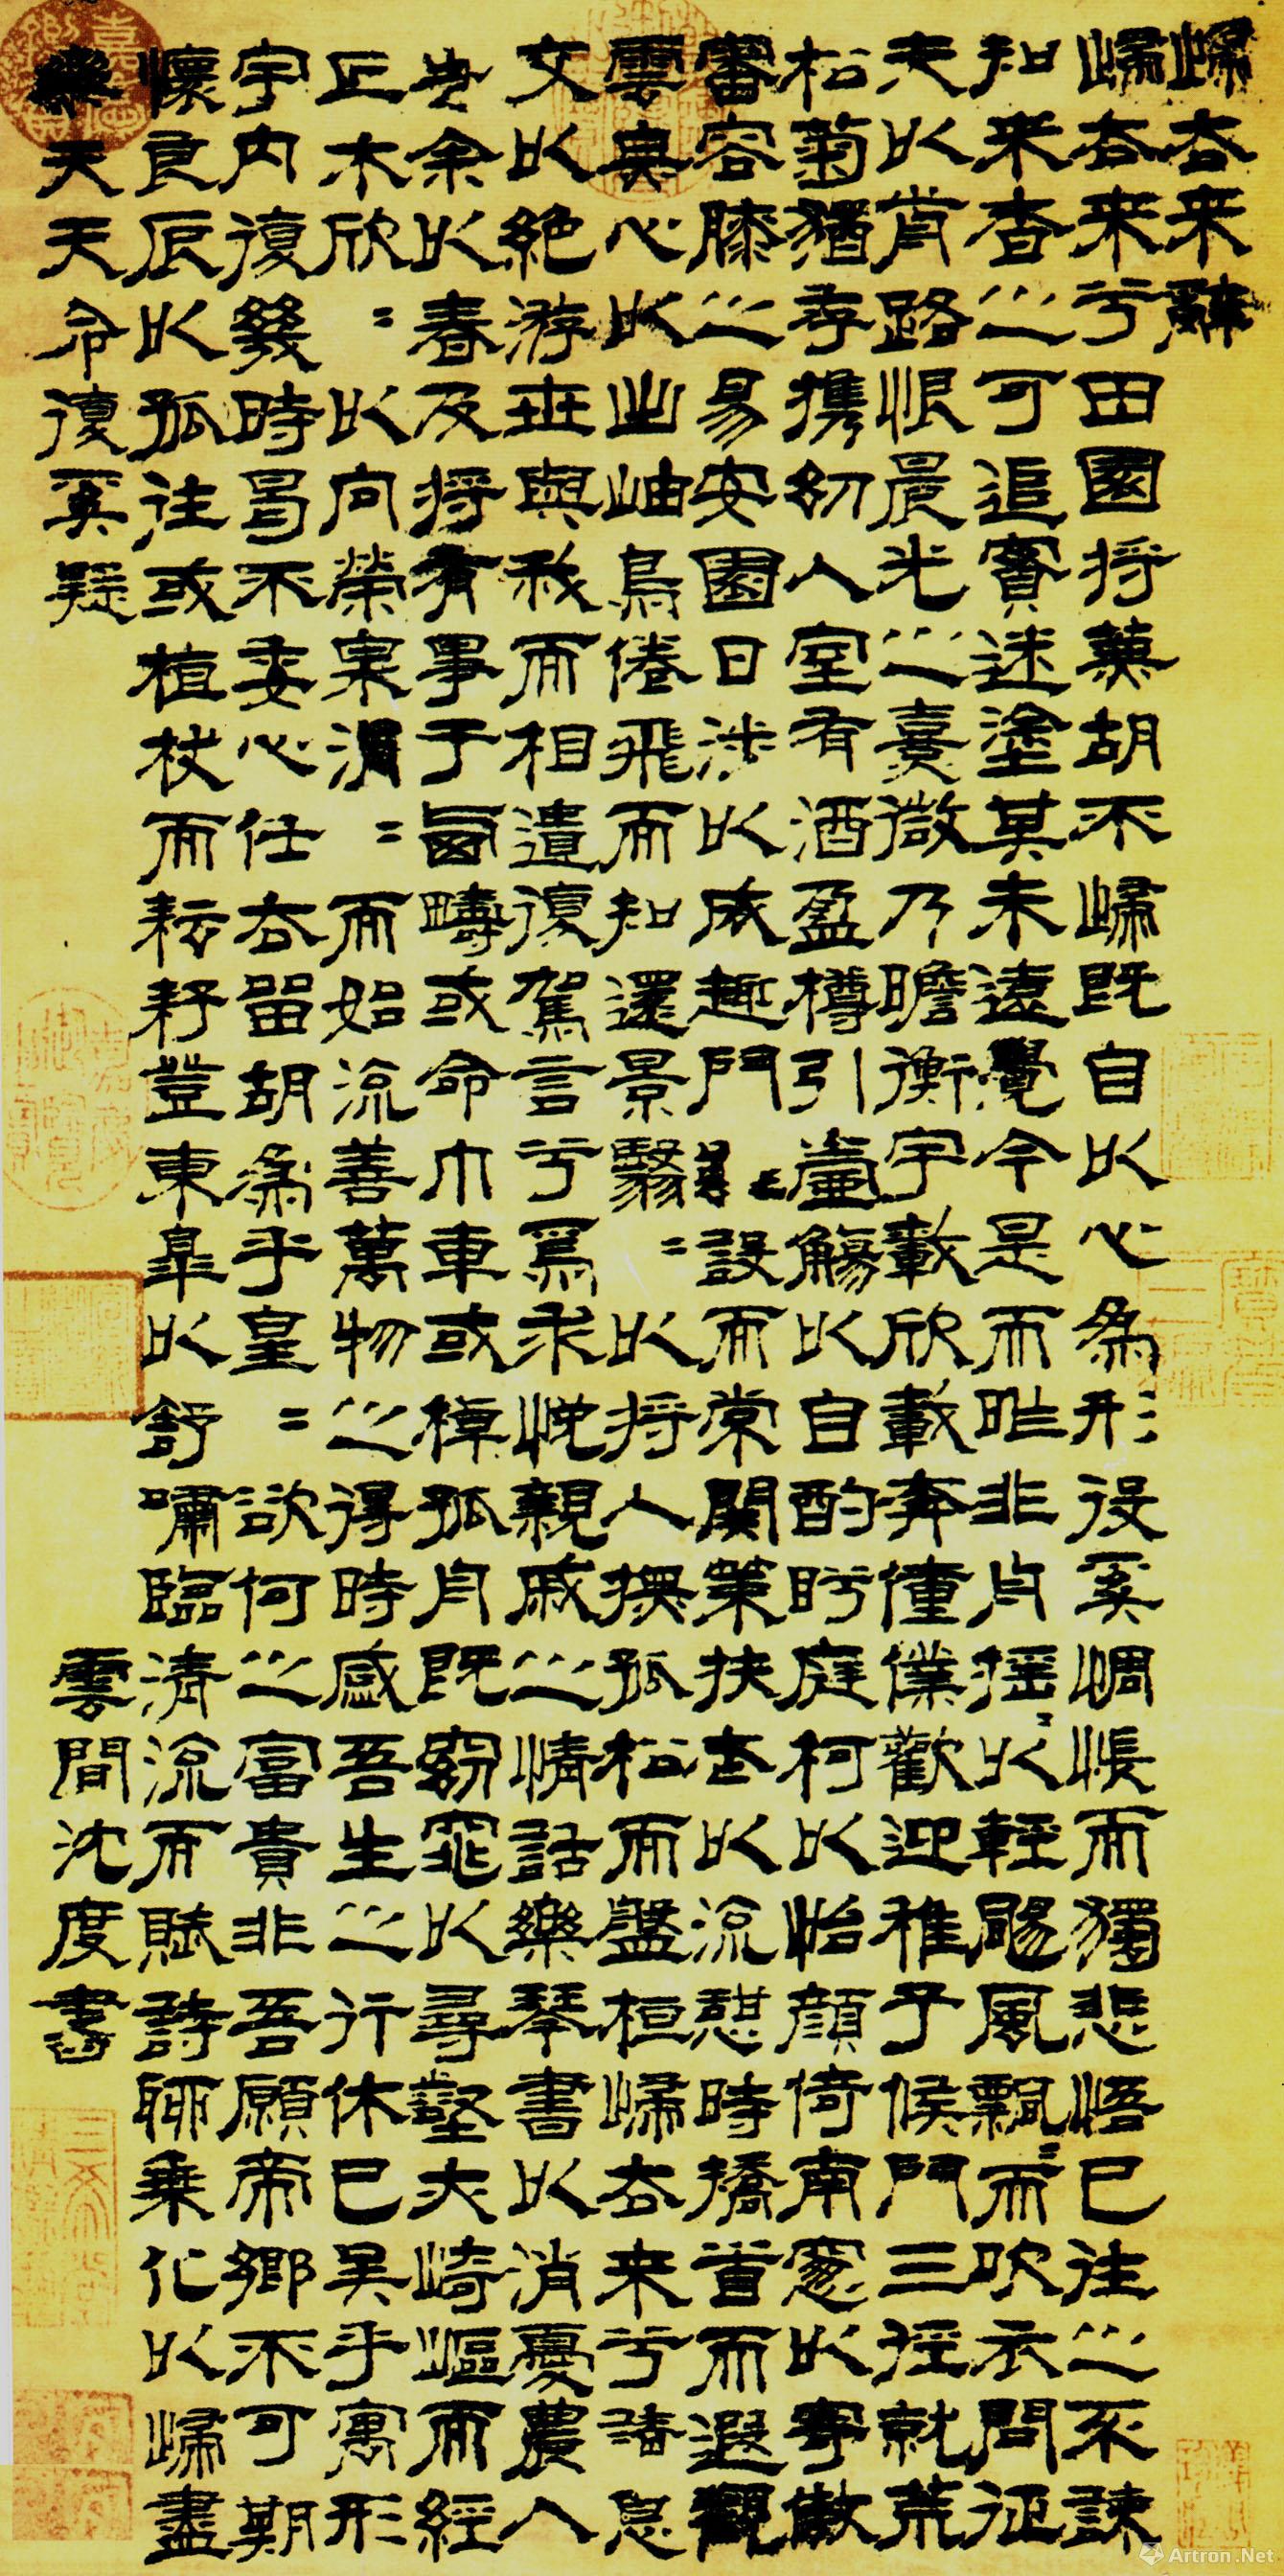 歸去來辭
歸去來兮田園將蕪胡不歸既自以心為形役奚惆悵而獨悲悟已往之不諫
知來者之可追實迷塗其未遠覺今是而昨非舟搖〻以輕颺風飄〻而吹衣問征
夫以前路恨晨光之熹微乃瞻衡宇載欣載奔僮僕歡迎稚子候門三徑就荒
松菊猶存攜幼入室有酒盈樽引壺觴以自酌眄庭柯以怡顏倚南窗以寄傲
審容膝之易安園日涉以成趣門雖設而常關策扶老以流憩時矯首而遐觀
雲無心以出岫鳥倦飛而知還景翳〻以將入撫孤松而盤桓歸去來兮請息
交以絕游世與我而相遺復駕言兮焉求悅親戚之情話樂琴書以消憂農人
告余以春及將有事于西疇或命巾車或棹孤舟既窈窕以尋壑亦崎嶇而經
丘木欣〻以向榮泉涓〻而始流善萬物之得時感吾生之行休已矣乎寓形
宇內復幾時曷不委心任去留胡為乎皇〻欲何之富貴非吾願帝鄉不可期
懷良辰以孤往或植杖而耘耔登東皋以舒嘯臨清流而賦詩聊乘化以歸盡
樂夫天命復奚疑
雲間沈度書
Artron.Net